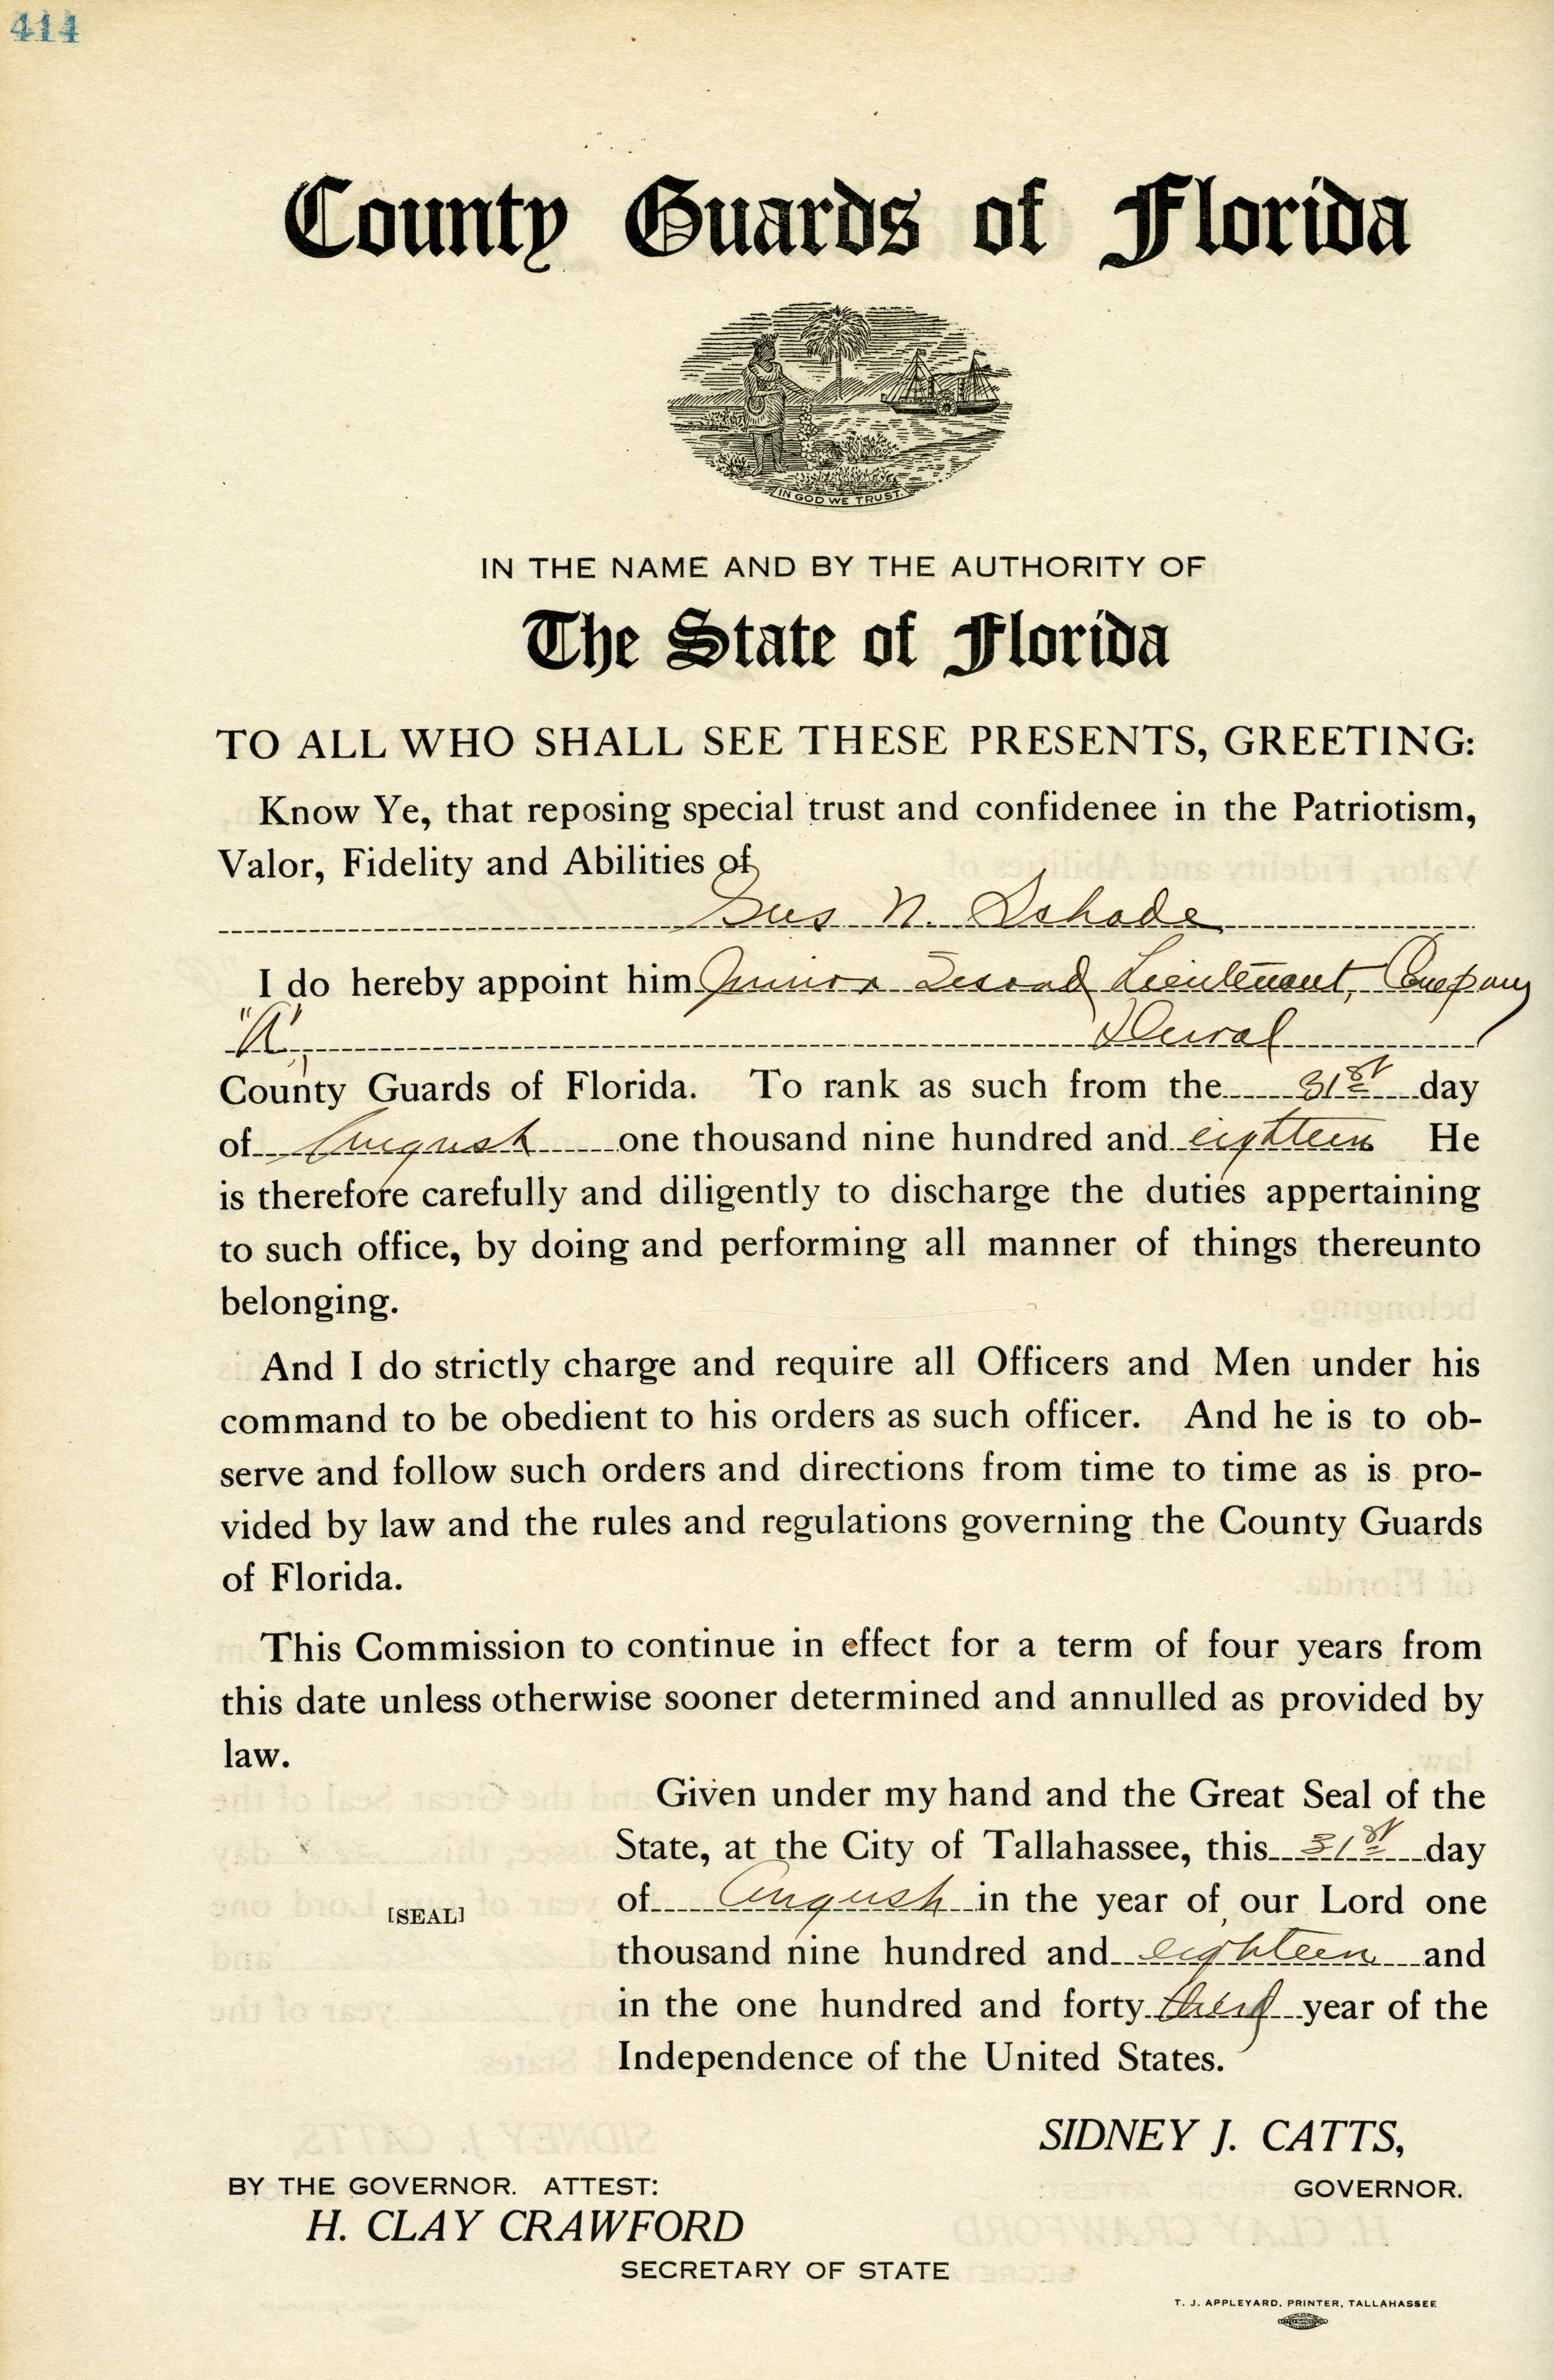 414
County Guards of Florida
IN GOD WE TRUST.
IN THE NAME AND BY THE AUTHORITY OF
The State of Florida
TO ALL WHO SHALL SEE THESE PRESENTS, GREETING:
Know Ye, that reposing special trust and confidenee in the Patriotism,
Valor, Fidelity and Abilities of
Gus N. Schade
I do hereby appoint him Junior Second Lieutenant, Company
"A", Duval
County Guards of Florida. To rank as such from the 31st day
of August one thousand nine hundred and eighteen He
is therefore carefully and diligently to discharge the duties appertaining
to such office, by doing and performing all manner of things thereunto
belonging.
And I do strictly charge and require all Officers and Men under his
command to be obedient to his orders as such officer. And he is to ob-
serve and follow such orders and directions from time to time as is pro-
vided by law and the rules and regulations governing the County Guards
of Florida.
This Commission to continue in effect for a term of four years from
this date unless otherwise sooner determined and annulled as provided by
law.
Given under my hand and the Great Seal of the
State, at the City of Tallahassee, this 31st day
of August in the year of our Lord one
[SEAL]
thousand nine hundred and eighteen and
in the one hundred and forty third year of the
Independence of the United States.
SIDNEY J. CATTS,
GOVERNOR.
BY THE GOVERNOR. ATTEST:
H. CLAY CRAWFORD
SECRETARY OF STATE
T. J. APPLEYARD, PRINTER, TALLAHASSEE